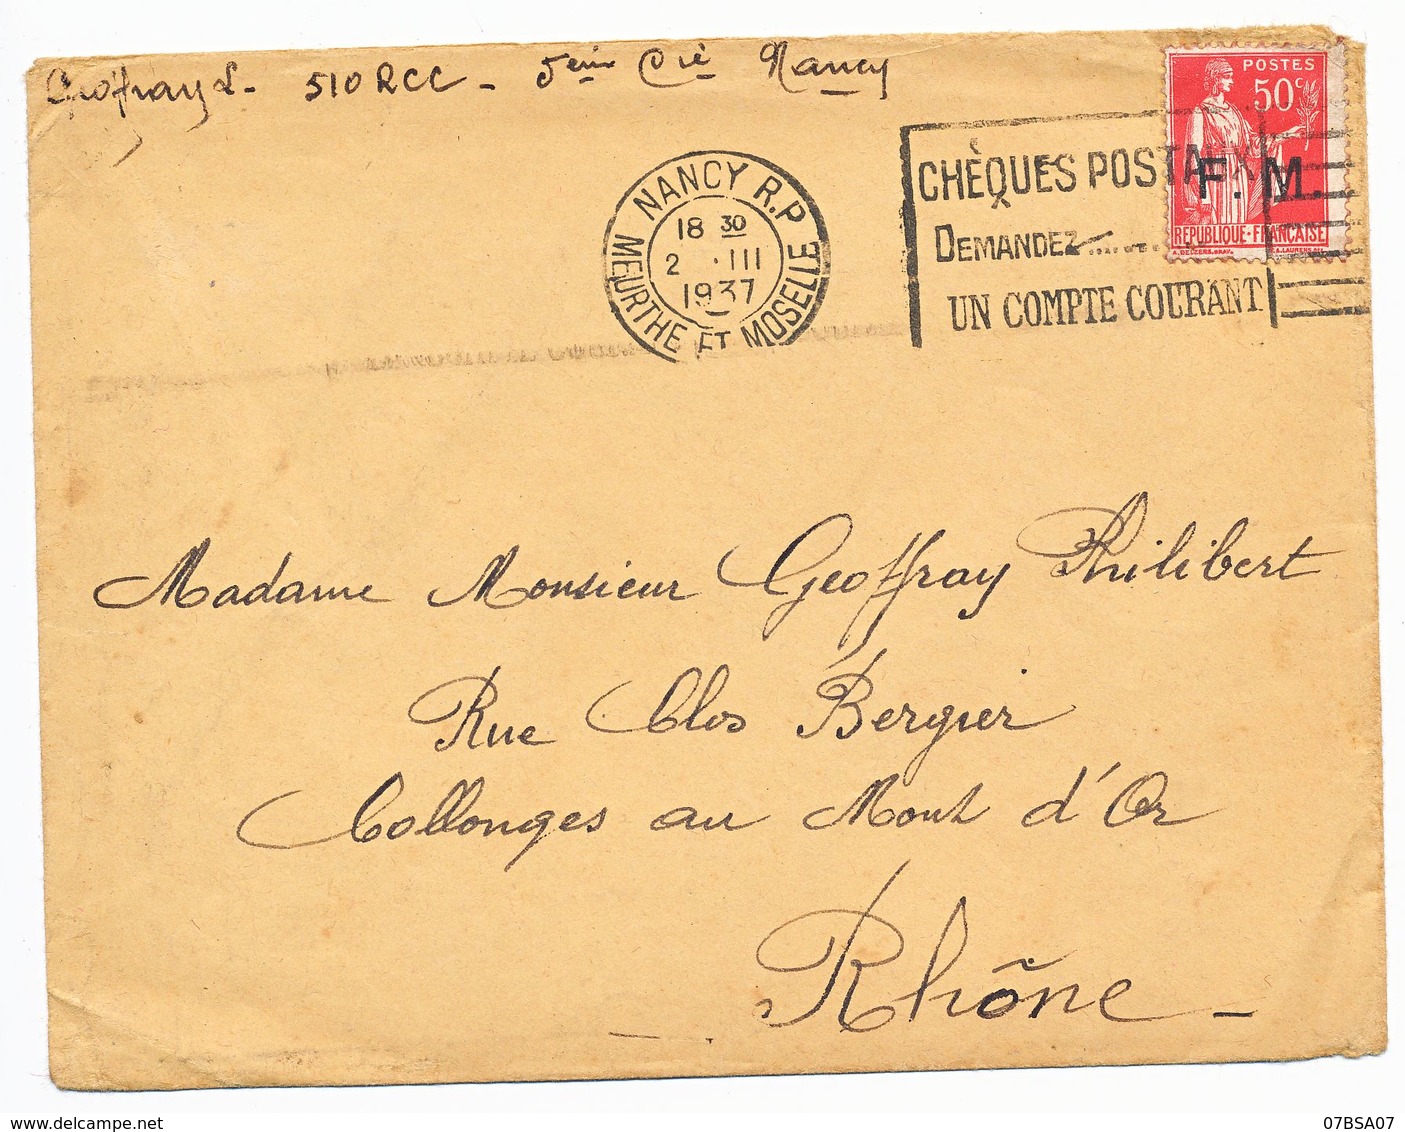 Geoffray L. - 510 RCC - 5eme Cie Nancy
POSTES
50c
F. M.
REPUBLIQUE·FRANÇAISE
NANCY R.P
18 30
2 ·III
1937
MEURTHE ET MOSELLE
CHÈQUES POSTAUX
DEMANDEZ........
UN COMPTE COURANT
Madame Monsieur Geoffray Philibert
Rue Clos Bergier
Collonges au Mont d'Or
Rhône -
delcampe.net
07BSA07